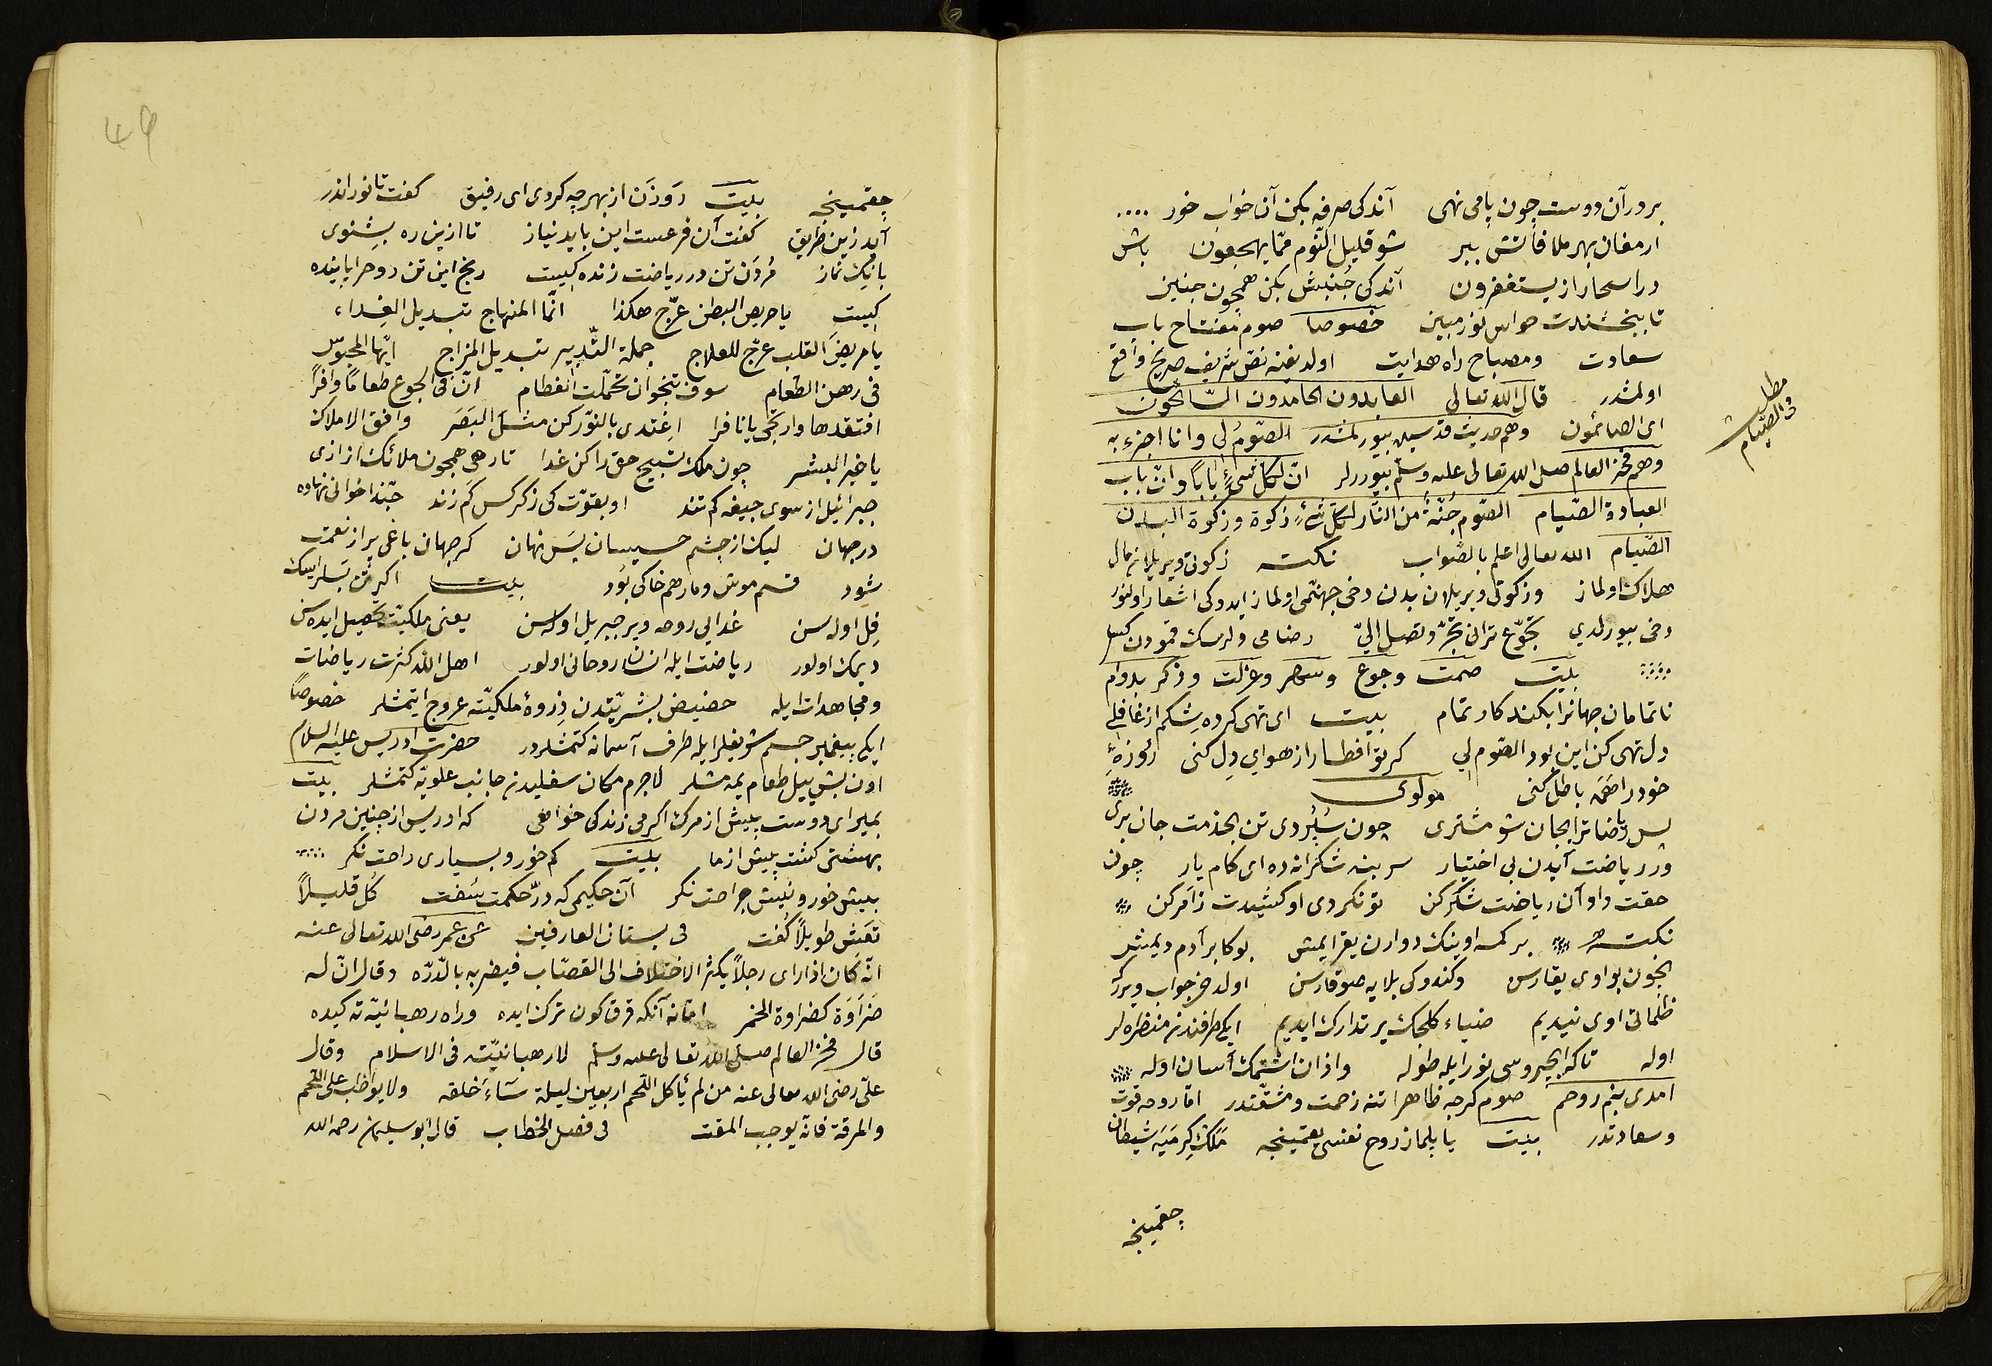 بر در آن دوست چون پا می نهی آندکی صرفه بکن آن خواب خور
ارمغان بهر ملاقاتش ببر شو قلیل النوم مما یهجعون باش
در اسحار از یستغفرون آندکی جنبش بکن همچون جنین
تا ببخشندت حواس نور مبین خصوصا صوم مفتاح باب
سعادت ومصباح راه هدایت اولدیغنه نص شریف صریح واقع
اولمشدر قال الله تعالی العابدون الحامدون السائحون
ای الصائمون وهم حدیث قدسیده بیورلمشدر الصوم لی وانا اجزء به
وهم فخر العالم صلی الله تعالی علیه وسلم بیوررلر ان لکل شیء بابا وان باب
العبادة الصیام الصوم جنة من النار لکل شیء زکوة وزکوة البدن
الصیام الله تعالی اعلم بالصواب نکته زکوتی ویریلان مال
هلاک اولماز وزکوتی ویریلان بدن دخی جهنمی اولماز ایدوکی اشعار اولنور
دخی بیورلدی تجوع ترانی تجرد تصل الی رضامی ولرسک قمودن کسل
بیت صمت وجوع وسهر وعزلت وذکر بدوام
ناتمامان جهانرا بکند کار تمام بیت ای تهی کرده شکم از غافلی
دل تهی کن این بود الصوم لی کر تو افطار از هوای دل کنی روزهٔ
خود را همه باطل کنی مولوی
پس ریاضاترا بجان شو مشتری چون سپردی تن بخدمت جان بری
ور ریاضت آیدت بی اختیار سر بنه شکرانه ده ای کام یار چون
حقت داد آن ریاضت شکر کن تو نکردی او کشیدت ز امر کن
نکته بر کمسه اوینک دوارن یقر ایمش بوکا بر آدم دیمش
نیچون بو اوی یقارسن وکندوکی بلایه صوقارسن اولدخی جواب ویررکه
ظلماتی اوی نیدیم ضیاء کلجک یر تدارک ایدیم ایکی طرفندن منظره لر
اوله تاکه ایچروسی نور ایله طوله واذان اشتمک آسان اوله
امدی بنم روحم صوم کرچه ظاهرا تنه زحمت ومشقتدر اما روحه قوت
وسعادتدر بیت یاپلماز روح نفسی یقمینجه ملک کیرمیه شیطان
چقمینجه
مطلب
فی الصیام
چقمینجه بیت روزن از بهر چه کردی ای رفیق کفت تا نور اندر
آید زین طریق کفت آن فرعست این باید نیاز تا ازین ره بشنوی
بانک نماز مردن تن در ریاضت زنده کیست رنج این تن روح را پاینده
کیست یا حریص البطن عرج هکذا انما المنهاج تبدیل الغداء
یا مریض القلب عرج للعلاج جملة التدبیر تبدیل المزاج ایها المحبوس
فی رهن الطعام سوف تنجو ان تحملت انفطام ان فی الجوع طعاما وافرا
افتقدها وارتجی یا نافرا اغتدی بالنور کن مثل البصر وافق الاملاک
یا خیر البشر چون ملک تسبیح حق را کن غدا تا رهی همچون ملائک از اذی
جبرائیل از سوی جیفه کم تند او بقوت کی ز کرکس کم زند حبذا خوانی نهاده
در جهان لیک از چشم خسیسان بس نهان کر جهان باغی پر از نعمت
شود قسم موش ومار هم خاکی بود بیت اکر تن بسلر ایسک
فل اوله سن غدایی روحه ویر جبریل اوله سن یعنی ملکیت تحصیل ایده سن
دیمک اولور ریاضت ایله انسان روحانی اولور اهل الله کثرت ریاضات
ومجاهدات ایله حضیض بشریتدن ذروهٔ ملکیته عروج ایتمشلر خصوصا
ایکی پیغمبر جسم شریفلر ایله طرف آسمانه کتمشلردر حضرت ادریس علیه السلام
اون بش ییل طعام یمه مشلر لاجرم مکان سفلیدن جانب علویه کتمشلر بیت
بمیر ای دوست پیش از مرک اکر می زندکی خواهی که ادریس از چنین مردن
بهشتی کشت پیش از ما بیت کم خور وبسیاری راحت نکر
بیش خور وبیش جراحت نکر آن حکیمی که در حکمت سفت کل قلیلا
تعش طویلا کفت فی بستان العارفین عن عمر رضی الله تعالی عنه
انه کان اذا رای رجلا یکثر الاختلاف الی القصاب فیضربه بالدره وقال ان له
ضراوة کضراوة الخمر اما نه آنکه قرق کون ترک ایده وراه رهبانیته کیده
قال فخر العالم صلی الله تعالی علیه وسلم لا رهبانیت فی الاسلام وقال
علی رضی الله تعالی عنه من لم یأکل اللحم اربعین لیلة ساء خلقه ولا یواظب علی اللحم
والمرقة فانه یوجب المقت فی فصل الخطاب قال ابو سلیمان رحمه الله